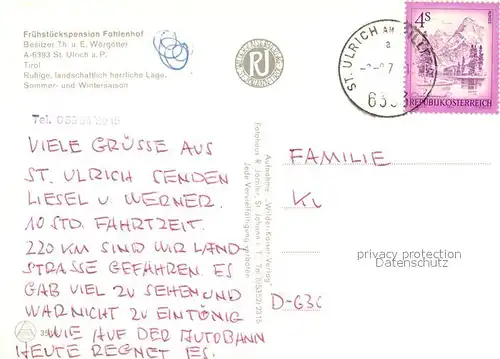 Frühstückspension Fohlenhof
Besitzer Th. u. E. Wörgötter
A-6393 St. Ulrich a. P.
Tirol
Ruhige, landschaftlich herrliche Lage.
Sommer- und Wintersaison
Tel.
VIELE GRÜSSE AUS
ST. ULRICH SENDEN
LIESEL U. WERNER.
10 STD. FAHRTZEIT.
220 KM SIND WIR LAND-
STRASSE GEFAHREN. ES
GAB VIEL ZU SEHEN UND
WAR NICHT ZU EINTÖNIG
WIE AUF DER AUTOBAHN
HEUTE REGNET ES.
Aufnahme „Wilder-Kaiser-Verlag"
Fotohaus R. Jöchler, St. Johann i. T.
Jede Vervielfältigung verboten
RJ
ST. ULRICH AM
4S
REPUBLIK ÖSTERREICH
FAMILIE
privacy protection
Datenschutz